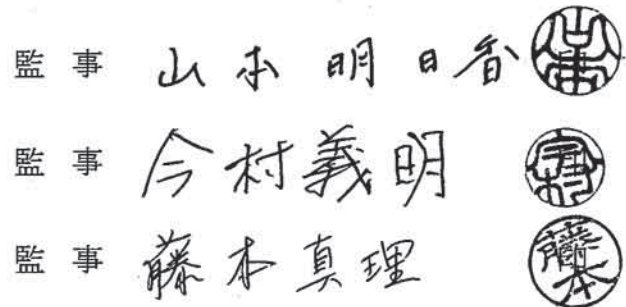 監事 山本明日香 山本
監事 今村義明 今村
監事 藤本真理 藤本